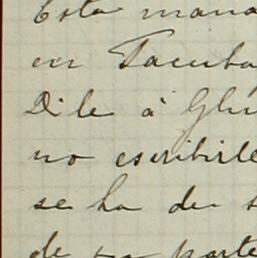 Esta mana
en Tacuba
Dile á Glu
no escribirle
se ha de s
de parte